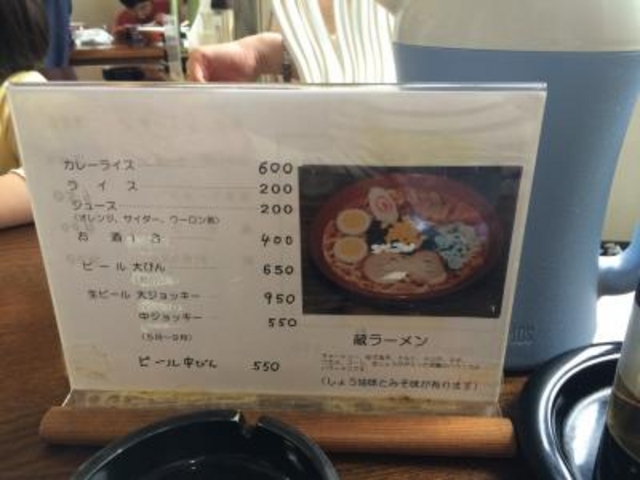 カレーライス 600
ライス 200
ジュース 200
(オレンジ、サイダー、ウーロン茶)
お酒 1合 400
ビール 大びん 650
生ビール 大ジョッキー 950
中ジョッキー 550
ビール中びん 550
蔵ラーメン
(しょうゆ味とみそ味が有ります)